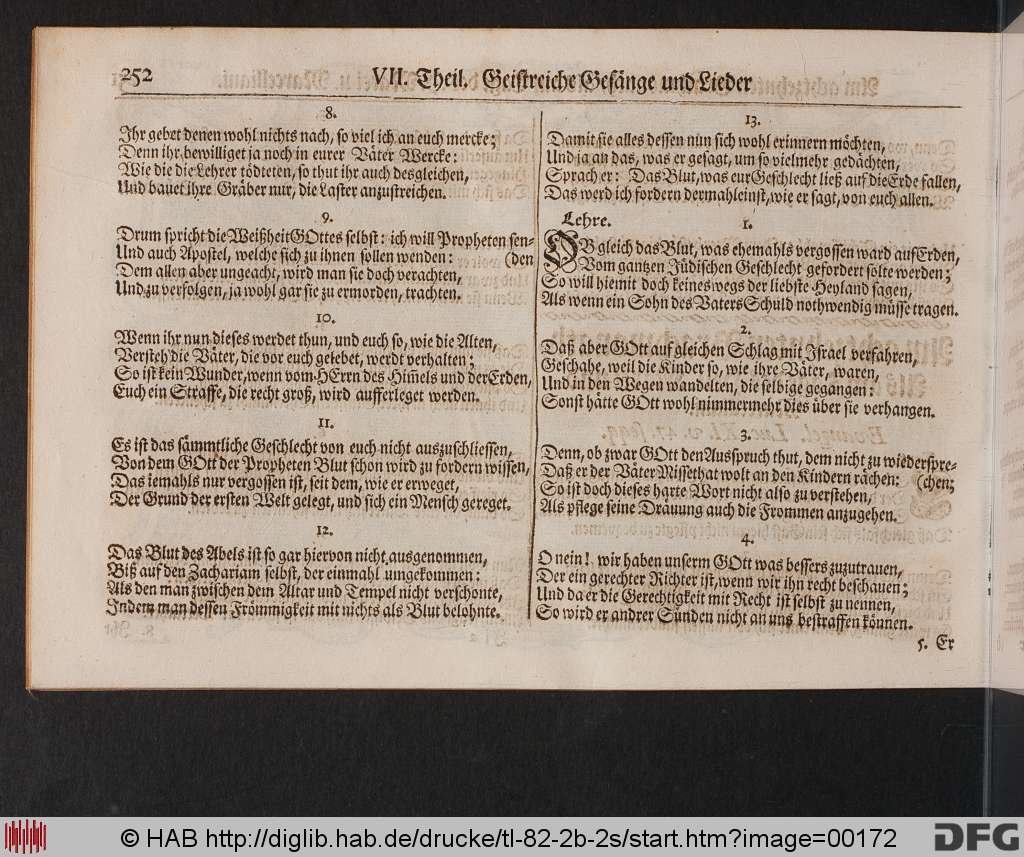 252
VII. Theil. Geistreiche Gesänge und Lieder
8.
Ihr gebet denen wohl nichts nach, so viel ich an euch mercke;
Denn ihr bewilliget ja noch in eurer Väter Wercke:
Wie die die Lehrer tödteten, so thut ihr auch desgleichen,
Und bauet ihre Gräber nur, die Laster anzustreichen.
9.
Drum spricht die Weißheit GOttes selbst: ich will Propheten sen-
Und auch Apostel, welche sich zu ihnen sollen wenden: (den
Dem allen aber ungeacht, wird man sie doch verachten,
Und zu verfolgen, ja wohl gar sie zu ermorden, trachten.
10.
Wenn ihr nun dieses werdet thun, und euch so, wie die Alten,
Versteh die Väter, die vor euch gelebet, werdt verhalten;
So ist kein Wunder, wenn vom HErrn des Him̃els und der Erden,
Euch ein Straffe, die recht groß, wird aufferleget werden.
11.
Es ist das sämmtliche Geschlecht von euch nicht auszuschliessen,
Von dem GOtt der Propheten Blut schon wird zu fordern wissen,
Das iemahls nur vergossen ist, seit dem, wie er erweget,
Der Grund der ersten Welt gelegt, und sich ein Mensch gereget.
12.
Das Blut des Abels ist so gar hiervon nicht ausgenommen,
Biß auf den Zachariam selbst, der einmahl umgekommen:
Als den man zwischen dem Altar und Tempel nicht verschonte,
Indem man dessen Frömmigkeit mit nichts als Blut belohnte.
13.
Damit sie alles dessen nun sich wohl erinnern möchten,
Und ja an das, was er gesagt, um so vielmehr gedächten,
Sprach er: Das Blut, was eur Geschlecht ließ auf die Erde fallen,
Das werd ich fordern dermahleinst, wie er sagt, von euch allen.
Lehre.
1.
OB gleich das Blut, was ehemahls vergossen ward auf Erden,
Vom gantzen Jüdischen Geschlecht gefordert solte werden;
So will hiemit doch keineswegs der liebste Heyland sagen,
Als wenn ein Sohn des Vaters Schuld nothwendig müsse tragen.
2.
Daß aber GOtt auf gleichen Schlag mit Israel verfahren,
Geschahe, weil die Kinder so, wie ihre Väter, waren,
Und in den Wegen wandelten, die selbige gegangen:
Sonst hätte GOtt wohl nimmermehr dies über sie verhangen.
3.
Denn, ob zwar GOtt den Ausspruch thut, dem nicht zu wiederspre-
Daß er der Väter Missethat wolt an den Kindern rächen: (chen;
So ist doch dieses harte Wort nicht also zu verstehen,
Als pflege seine Dräuung auch die Frommen anzugehen.
4.
O nein! wir haben unserm GOtt was bessers zuzutrauen,
Der ein gerechter Richter ist, wenn wir ihn recht beschauen;
Und da er die Gerechtigkeit mit Recht ist selbst zu nennen,
So wird er andrer Sünden nicht an uns bestraffen können.
5. Er
© HAB http://diglib.hab.de/drucke/tl-82-2b-2s/start.htm?image=00172
DFG